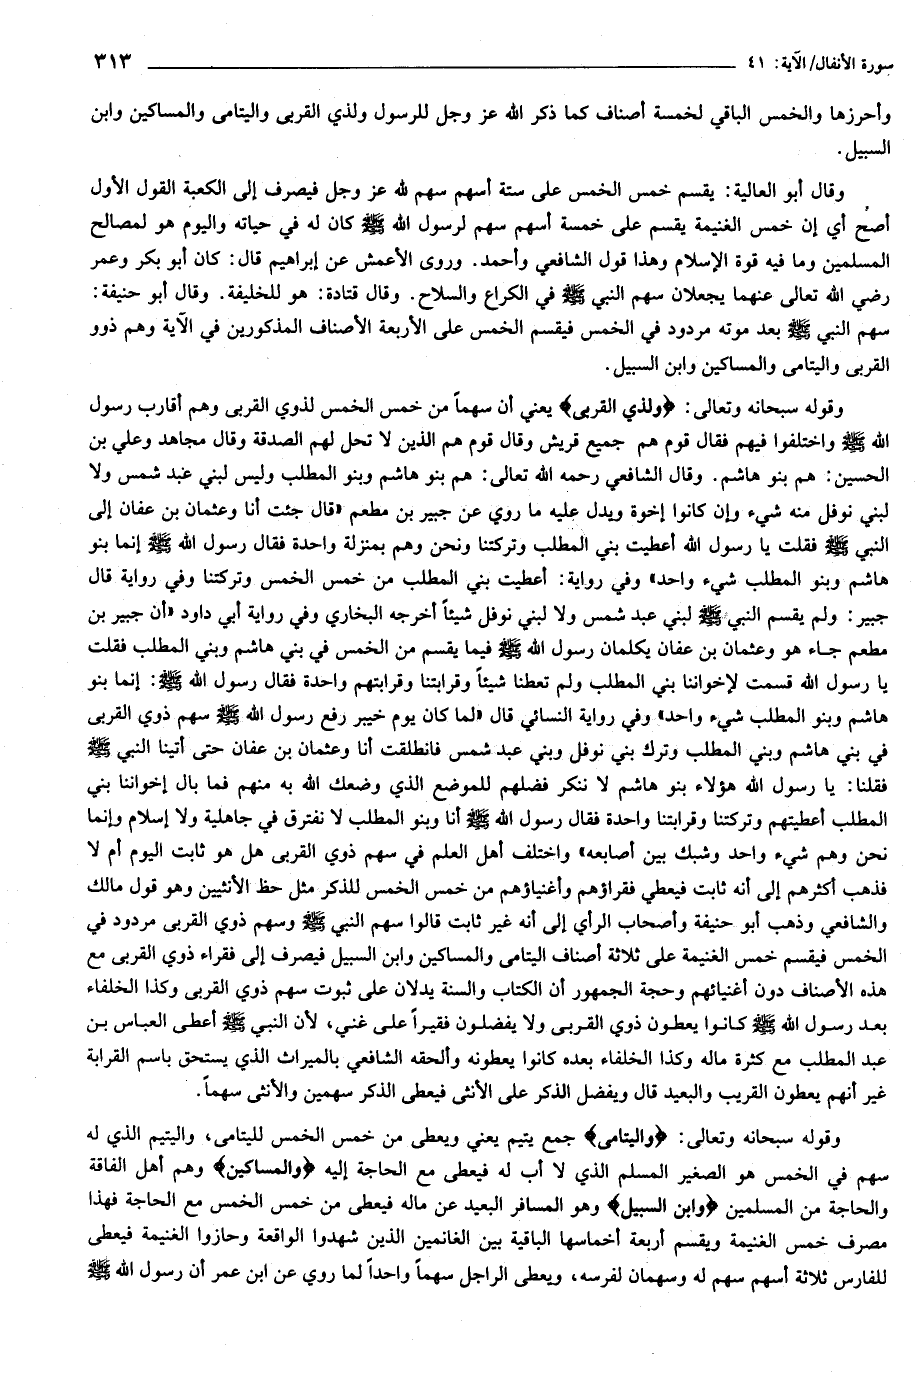 سورة الأنفال/ الآية: ٤١ ٣١٣
وأحرزها والخمس الباقي لخمسة أصناف كما ذكر الله عز وجل للرسول ولذي القربى واليتامى والمساكين وابن
السبيل.
وقال أبو العالية: يقسم خمس الخمس على ستة أسهم سهم لله عز وجل فيصرف إلى الكعبة القول الأول
أصحُ أي إن خمس الغنيمة يقسم على خمسة أسهم سهم لرسول الله ﷺ كان له في حياته واليوم هو لمصالح
المسلمين وما فيه قوة الإسلام وهذا قول الشافعي وأحمد. وروى الأعمش عن إبراهيم قال: كان أبو بكر وعمر
رضي الله تعالى عنهما يجعلان سهم النبي ﷺ في الكراع والسلاح. وقال قتادة: هو للخليفة. وقال أبو حنيفة:
سهم النبي ﷺ بعد موته مردود في الخمس فيقسم الخمس على الأربعة الأصناف المذكورين في الآية وهم ذوو
القربى واليتامى والمساكين وابن السبيل.
وقوله سبحانه وتعالى: ﴿ولذي القربى﴾ يعني أن سهماً من خمس الخمس لذوي القربى وهم أقارب رسول
الله ﷺ واختلفوا فيهم فقال قوم هم جميع قريش وقال قوم هم الذين لا تحل لهم الصدقة وقال مجاهد وعلي بن
الحسين: هم بنو هاشم. وقال الشافعي رحمه الله تعالى: هم بنو هاشم وبنو المطلب وليس لبني عبد شمس ولا
لبني نوفل منه شيء وإن كانوا إخوة ويدل عليه ما روي عن جبير بن مطعم «قال جئت أنا وعثمان بن عفان إلى
النبي ﷺ فقلت يا رسول الله أعطيت بني المطلب وتركتنا ونحن وهم بمنزلة واحدة فقال رسول الله ﷺ إنما بنو
هاشم وبنو المطلب شيء واحد» وفي رواية: أعطيت بني المطلب من خمس الخمس وتركتنا وفي رواية قال
جبير: ولم يقسم النبي ﷺ لبني عبد شمس ولا لبني نوفل شيئاً أخرجه البخاري وفي رواية أبي داود «أن جبير بن
مطعم جاء هو وعثمان بن عفان يكلمان رسول الله ﷺ فيما يقسم من الخمس في بني هاشم وبني المطلب فقلت
يا رسول الله قسمت لإخواننا بني المطلب ولم تعطنا شيئاً وقرابتنا وقرابتهم واحدة فقال رسول الله ﷺ: إنما بنو
هاشم وبنو المطلب شيء واحد» وفي رواية النسائي قال «لما كان يوم خيبر رفع رسول الله ﷺ سهم ذوي القربى
في بني هاشم وبني المطلب وترك بني نوفل وبني عبد شمس فانطلقت أنا وعثمان بن عفان حتى أتينا النبي ﷺ
فقلنا: يا رسول الله هؤلاء بنو هاشم لا ننكر فضلهم للموضع الذي وضعك الله به منهم فما بال إخواننا بني
المطلب أعطيتهم وتركتنا وقرابتنا واحدة فقال رسول الله ﷺ أنا وبنو المطلب لا نفترق في جاهلية ولا إسلام وإنما
نحن وهم شيء واحد وشبك بين أصابعه» واختلف أهل العلم في سهم ذوي القربى هل هو ثابت اليوم أم لا
فذهب أكثرهم إلى أنه ثابت فيعطي فقراؤهم وأغنياؤهم من خمس الخمس للذكر مثل حظ الأنثيين وهو قول مالك
والشافعي وذهب أبو حنيفة وأصحاب الرأي إلى أنه غير ثابت قالوا سهم النبي ﷺ وسهم ذوي القربى مردود في
الخمس فيقسم خمس الغنيمة على ثلاثة أصناف اليتامى والمساكين وابن السبيل فيصرف إلى فقراء ذوي القربى مع
هذه الأصناف دون أغنيائهم وحجة الجمهور أن الكتاب والسنة يدلان على ثبوت سهم ذوي القربى وكذا الخلفاء
بعد رسول الله ﷺ كانوا يعطون ذوي القربى ولا يفضلون فقيراً على غني، لأن النبي ﷺ أعطى العباس بن
عبد المطلب مع كثرة ماله وكذا الخلفاء بعده كانوا يعطونه وألحقه الشافعي بالميراث الذي يستحق باسم القرابة
غير أنهم يعطون القريب والبعيد قال ويفضل الذكر على الأنثى فيعطى الذكر سهمين والأنثى سهماً.
وقوله سبحانه وتعالى: ﴿واليتامى﴾ جمع يتيم يعني ويعطى من خمس الخمس لليتامى، واليتيم الذي له
سهم في الخمس هو الصغير المسلم الذي لا أب له فيعطى مع الحاجة إليه ﴿والمساكين﴾ وهم أهل الفاقة
والحاجة من المسلمين ﴿وابن السبيل﴾ وهو المسافر البعيد عن ماله فيعطى من خمس الخمس مع الحاجة فهذا
مصرف خمس الغنيمة ويقسم أربعة أخماسها الباقية بين الغانمين الذين شهدوا الواقعة وحازوا الغنيمة فيعطى
للفارس ثلاثة أسهم سهم له وسهمان لفرسه، ويعطى الراجل سهماً واحداً لما روي عن ابن عمر أن رسول الله ﷺ